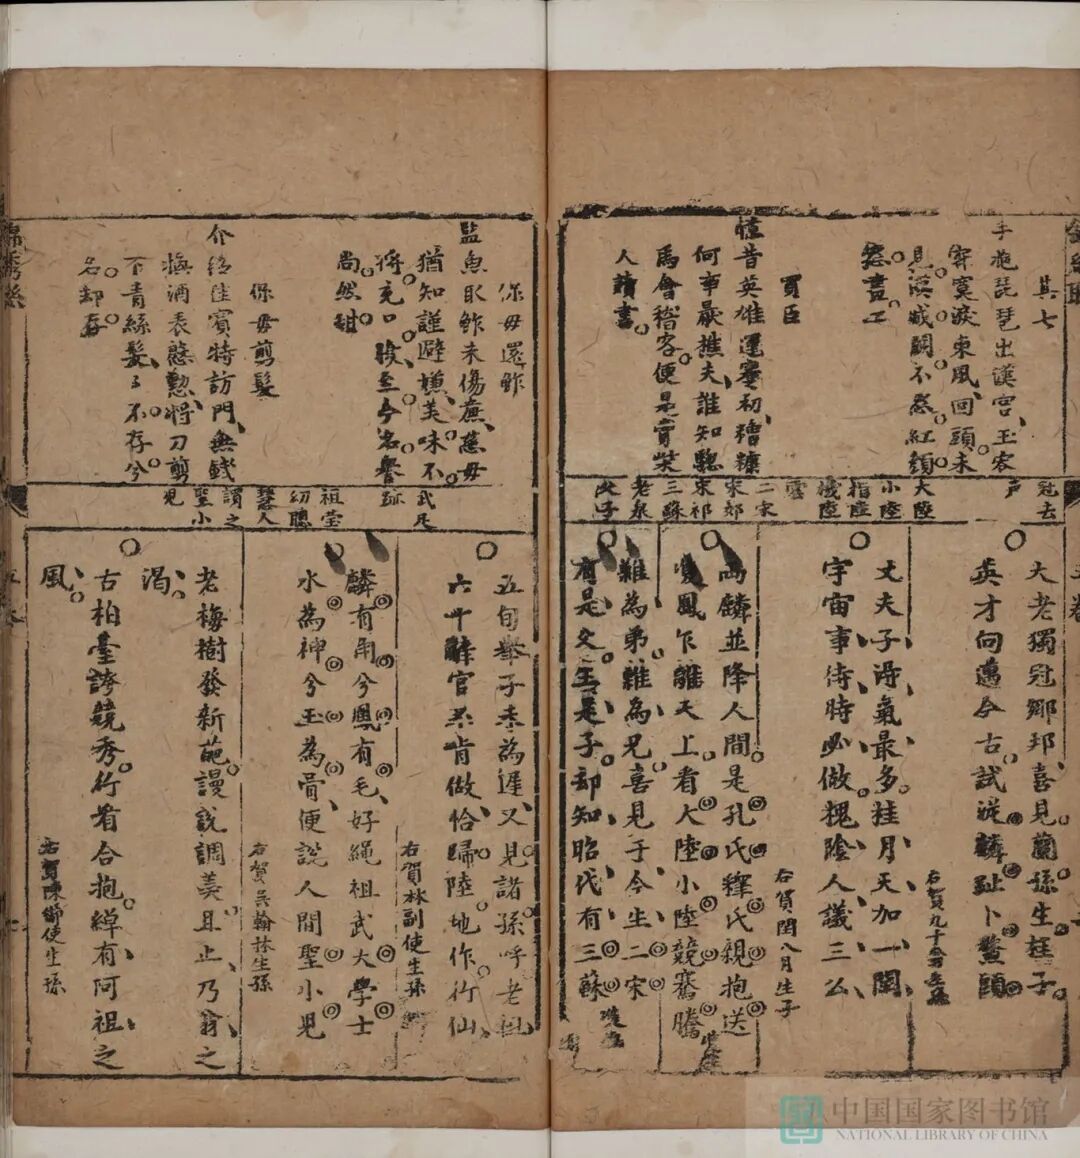 其七
手抱琵琶出漢宮玉容
寂寞淚東風回頭未
不怨紅顏
怨畫工
買臣
憶昔英雄運蹇初糟糠
何事厭樵夫誰知駟
馬會稽客便是當時
人讀書
冠古
声
大陸
小陸
指陸
機陸
雲
二宋
宋郊
宋祁
三蘇
老泉
父子
大老獨冠鄉邦喜見蘭孫生桂子
英才向邁今古試從麟趾卜鰲頭
丈夫子得氣最多桂月天加一閏
宇宙事待時必做槐陰人議三公
右賀閏八月生子
兩麟並降人間是孔氏釋氏親抱送
雙鳳乍離天上看大陸小陸競騫騰
難為弟難為兄喜見于今生二宋
有是父生是子却知昭代有三蘇
母還鮓
監魚取鮓未傷廉慈母
猶知謹避嫌美味不
將充口腹至今名譽
尚然甜
保母剪髮
賓特訪門無錢
換酒表慇懃將刀剪
下青絲髮髮不存兮
名却存
武
跡
祖瑩
幼聰
慧人
謂之
聖小
兒
五旬舉子未為遲又見諸孫呼老祖
六十辭官不肯做恰歸陸地作行仙
右賀林副使生孫
麟有角兮鳳有毛好繩祖武大學士
水為神兮玉為骨便説人間聖小兒
右賀吳翰林生孫
老梅樹發新葩謾説調羹且止乃翁之
渴
古柏臺誇競秀行看合抱綽有阿祖之
風
右賀陳御使生孫
中国国家图书馆
NATIONAL LIBRARY OF CHINA